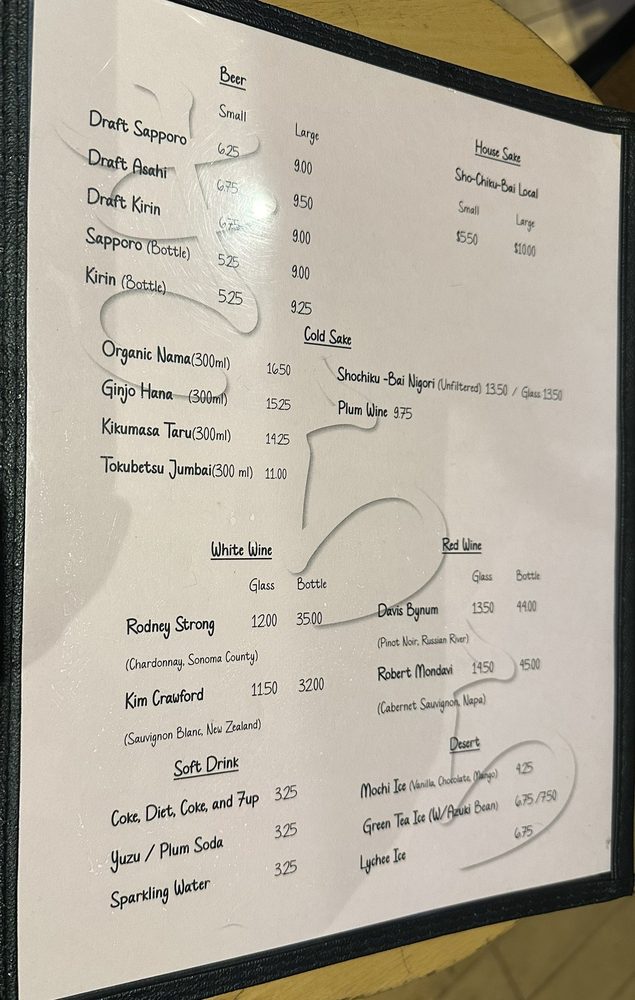 Beer
Small Large
Draft Sapporo 6.25 9.00
Draft Asahi 6.75 9.50
Draft Kirin 6.75 9.00
Sapporo (Bottle) 5.25 9.00
Kirin (Bottle) 5.25 9.25
House Sake
Sho-Chiku-Bai Local
Small Large
$5.50 $10.00
Cold Sake
Organic Nama(300ml) 16.50
Ginjo Hana (300ml) 15.25
Kikumasa Taru(300ml) 14.25
Tokubetsu Jumbai(300 ml) 11.00
Shochiku -Bai Nigori (Unfiltered) 13.50 / Glass 13.50
Plum Wine 9.75
White Wine
Glass Bottle
Rodney Strong 12.00 35.00
(Chardonnay, Sonoma County)
Kim Crawford 11.50 32.00
(Sauvignon Blanc, New Zealand)
Red Wine
Glass Bottle
Davis Bynum 13.50 44.00
(Pinot Noir, Russian River)
Robert Mondavi 14.50 45.00
(Cabernet Sauvignon, Napa)
Soft Drink
Coke, Diet, Coke, and 7up 3.25
Yuzu / Plum Soda 3.25
Sparkling Water 3.25
Desert
Mochi Ice (Vanilla, Chocolate, (Mango) 4.25
Green Tea Ice (W/Azuki Bean) 6.75 /7.50
Lychee Ice 6.75